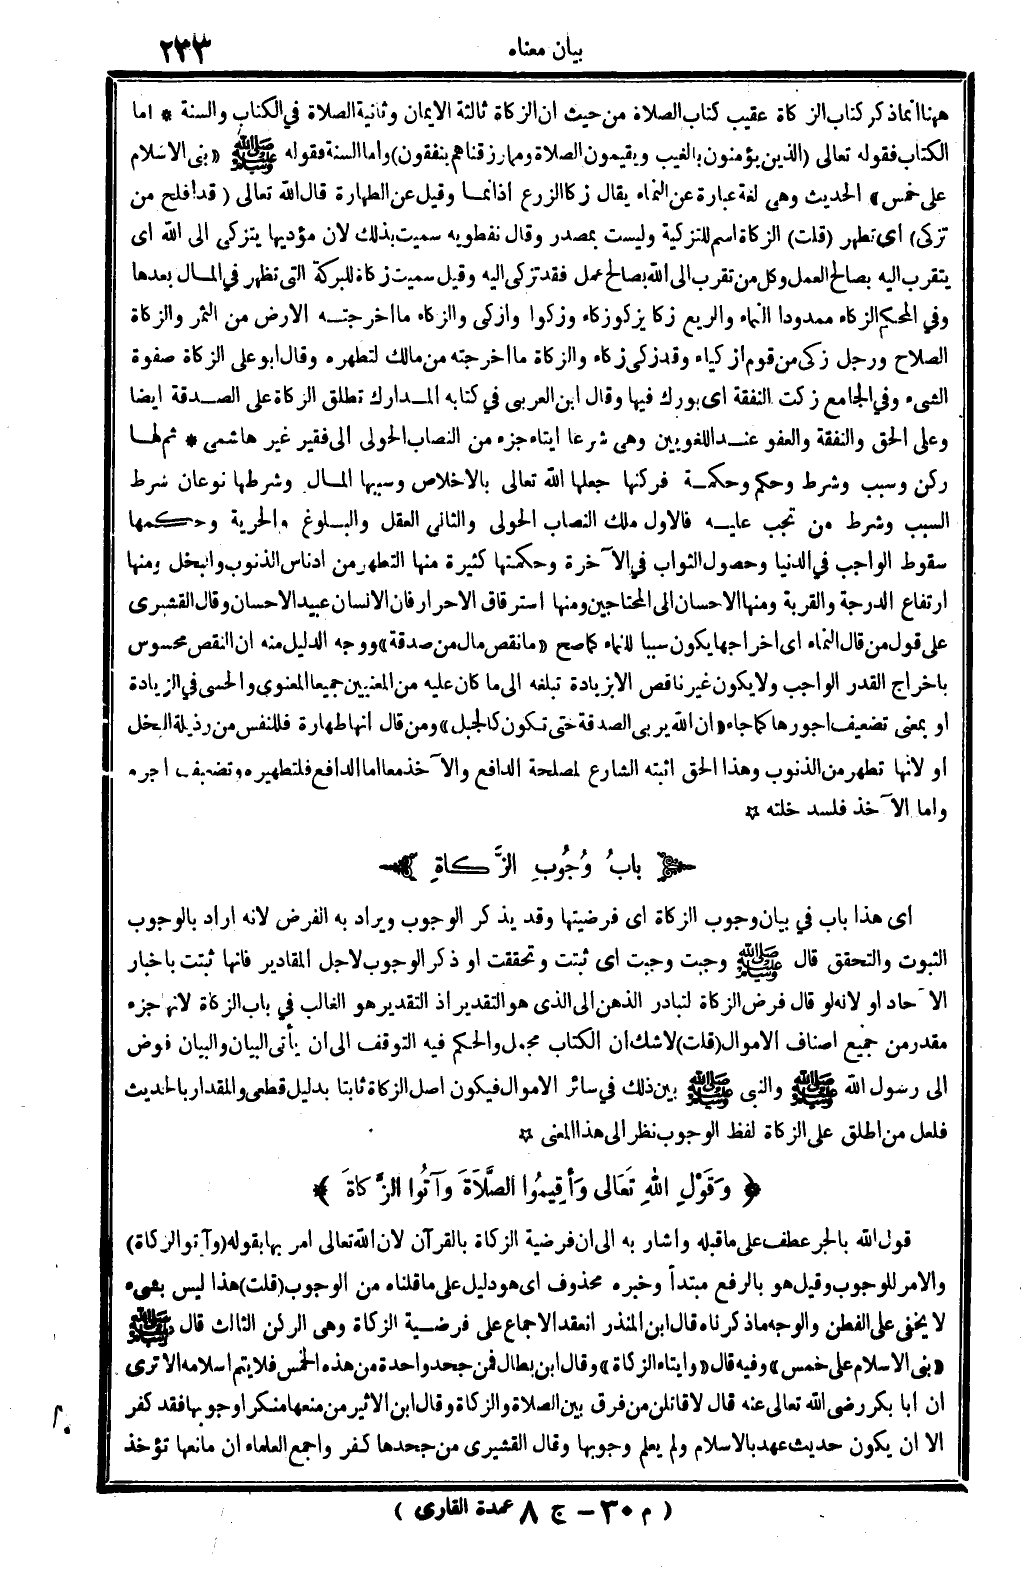 بيان معناه ٢٣٣
ههنا انما ذكر كتاب الزكاة عقيب كتاب الصلاة من حيث ان الزكاة ثالثة الايمان وثانية الصلاة في الكتاب والسنة * اما
الكتاب فقوله تعالى (الذين يؤمنون بالغيب ويقيمون الصلاة ومما رزقناهم ينفقون) واما السنة فقوله ﷺ «بنى الاسلام
على خمس» الحديث وهى لغة عبارة عن النماء يقال زكا الزرع اذا نما وقيل عن الطهارة قال الله تعالى (قد افلح من
تزكى) اى تطهر (قلت) الزكاة اسم للتزكية وليست بمصدر وقال نفطويه سميت بذلك لان مؤديها يتزكى الى الله اى
يتقرب اليه بصالح العمل وكل من تقرب الى الله بصالح عمل فقد تزكى اليه وقيل سميت زكاة للبركة التى تظهر في المال بعدها
وفي المحكم الزكاء ممدودا النماء والريع زكا يزكو زكاء وزكوا وازكى والزكاء ما اخرجته الارض من الثمر والزكاة
الصلاح ورجل زكى من قوم ازكياء وقد زكى زكاء والزكاة ما اخرجته من مالك لتطهره وقال ابو على الزكاة صفوة
الشىء وفي الجامع زكت النفقة اى بورك فيها وقال ابن العربى في كتابه المدارك تطلق الزكاة على الصدقة ايضا
وعلى الحق والنفقة والعفو عند اللغويين وهى شرعا ايتاء جزء من النصاب الحولى الى فقير غير هاشمى * ثم لها
ركن وسبب وشرط وحكم وحكمة فركنها جعلها الله تعالى بالاخلاص وسببها المال وشرطها نوعان شرط
السبب وشرط من تجب عليه فالاول ملك النصاب الحولى والثانى العقل والبلوغ والحرية وحكمها
سقوط الواجب في الدنيا وحصول الثواب في الآخرة وحكمتها كثيرة منها التطهر من ادناس الذنوب والبخل ومنها
ارتفاع الدرجة والقربة ومنها الاحسان الى المحتاجين ومنها استرقاق الاحرار فان الانسان عبيد الاحسان وقال القشيرى
على قول من قال النماء اى اخراجها يكون سببا للنماء كما صح «ما نقص مال من صدقة» ووجه الدليل منه ان النقص محسوس
باخراج القدر الواجب ولا يكون غير ناقص الا بزيادة تبلغه الى ما كان عليه من المعنيين جميعا المعنوى والحسى في الزيادة
او بمعنى تضعيف اجورها كما جاء «ان الله يربى الصدقة حتى تكون كالجبل» ومن قال انها طهارة فللنفس من رذيلة البخل
او لانها تطهر من الذنوب وهذا الحق اثبته الشارع لمصلحة الدافع والآخذ معا اما الدافع فلتطهيره وتضعيف اجره
واما الآخذ فلسد خلته ☆
باب وُجُوبِ الزَّكاةِ
اى هذا باب في بيان وجوب الزكاة اى فرضيتها وقد يذكر الوجوب ويراد به الفرض لانه اراد بالوجوب
الثبوت والتحقق قال ﷺ وجبت وجبت اى ثبتت وتحققت او ذكر الوجوب لاجل المقادير فانها ثبتت باخبار
الآحاد او لانه لو قال فرض الزكاة لتبادر الذهن الى الذى هو التقدير اذ التقدير هو الغالب في باب الزكاة لانها جزء
مقدر من جميع اصناف الاموال (قلت) لا شك ان الكتاب مجمل والحكم فيه التوقف الى ان يأتى البيان والبيان فوض
الى رسول الله ﷺ والنبى ﷺ بين ذلك في سائر الاموال فيكون اصل الزكاة ثابتا بدليل قطعى والمقدار بالحديث
فلعل من اطلق على الزكاة لفظ الوجوب نظر الى هذا المعنى ☆
﴿ وَقَوْلِ اللهِ تَعَالى وَأَقِيمُوا الصَّلَاةَ وَآتُوا الزَّكاةَ ﴾
قول الله بالجر عطف على ما قبله واشار به الى ان فرضية الزكاة بالقرآن لان الله تعالى امر بها بقوله (وآتوا الزكاة)
والامر للوجوب وقيل هو بالرفع مبتدأ وخبره محذوف اى هو دليل على ما قلناه من الوجوب (قلت) هذا ليس بشىء
لا يخفى على الفطن والوجه ما ذكرناه قال ابن المنذر انعقد الاجماع على فرضية الزكاة وهى الركن الثالث قال ﷺ
«بنى الاسلام على خمس» وفيه قال «وايتاء الزكاة» وقال ابن بطال فمن جحد واحدة من هذه الخمس فلا يتم اسلامه الا ترى
ان ابا بكر رضى الله تعالى عنه قال لاقاتلن من فرق بين الصلاة والزكاة وقال ابن الاثير من منعها منكرا وجوبها فقد كفر
الا ان يكون حديث عهد بالاسلام ولم يعلم وجوبها وقال القشيرى من جحدها كفر واجمع العلماء ان مانعها تؤخذ
( م ٣٠ – ج ٨ عمدة القارى )